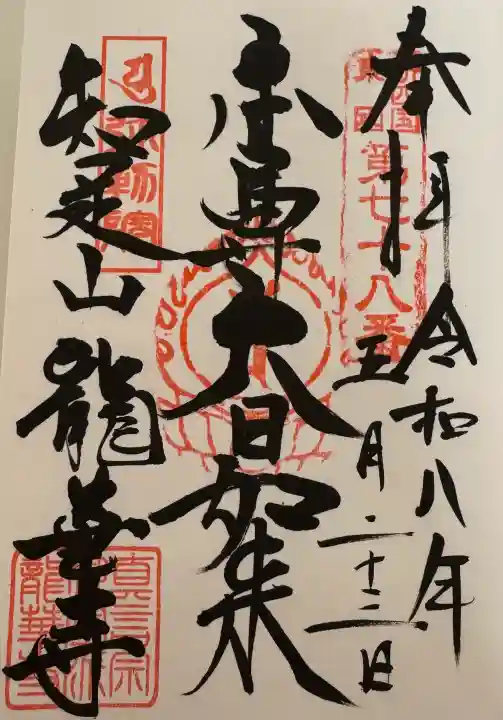 奉拝
令和八年
五月二十三日
第七十八番
本尊大日如来
知足山
弥勒院
龍華寺
真言宗
龍華寺